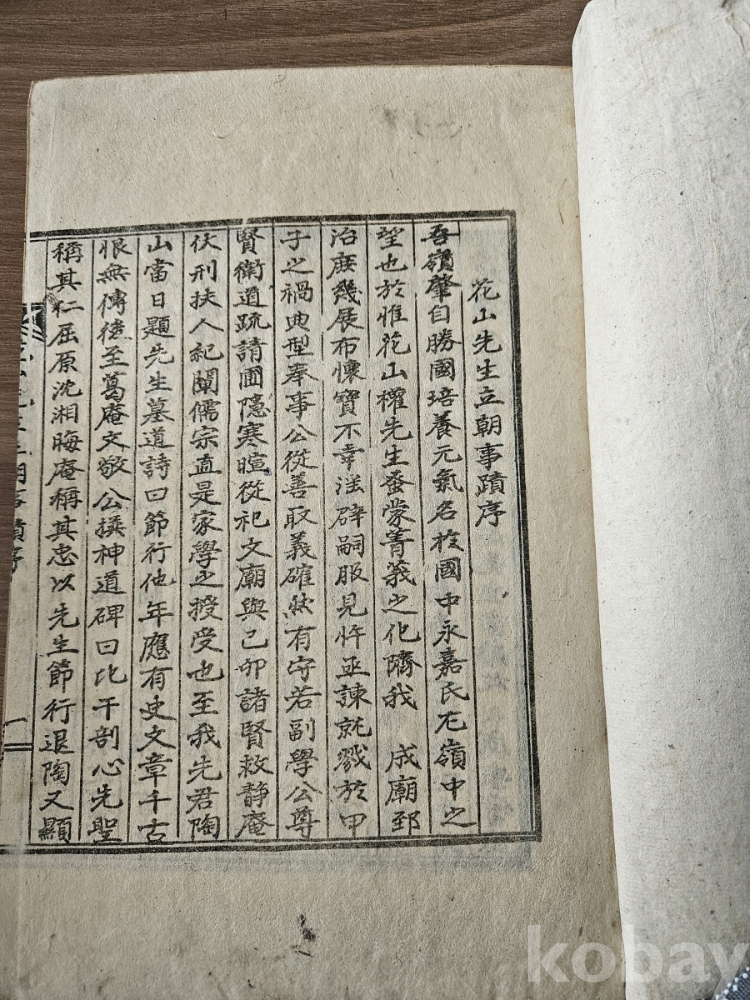 花山先生立朝事蹟序
吾嶺肇自勝國培養元氣名於國中永嘉氏尤嶺中之
望也於惟花山權先生蚤蒙菁莪之化隮我 成廟郅
治庶幾展布懷寶不幸淫辟嗣服見忤亟諫就戮於甲
子之禍典型奉事公從善取義確然有守若副學公尊
賢衛道疏請圃隱寒暄從祀文廟與己卯諸賢救静庵
伏刑扶人紀闡儒宗直是家學之授受也至我先君陶
山當日題先生墓道詩曰節行他年應有史文章千古
恨無傳逮至葛庵文敬公撰神道碑曰比干剖心先聖
稱其仁屈原沈湘晦庵稱其忠以先生節行退陶又顯
花山先生立朝事蹟序
一
kobay